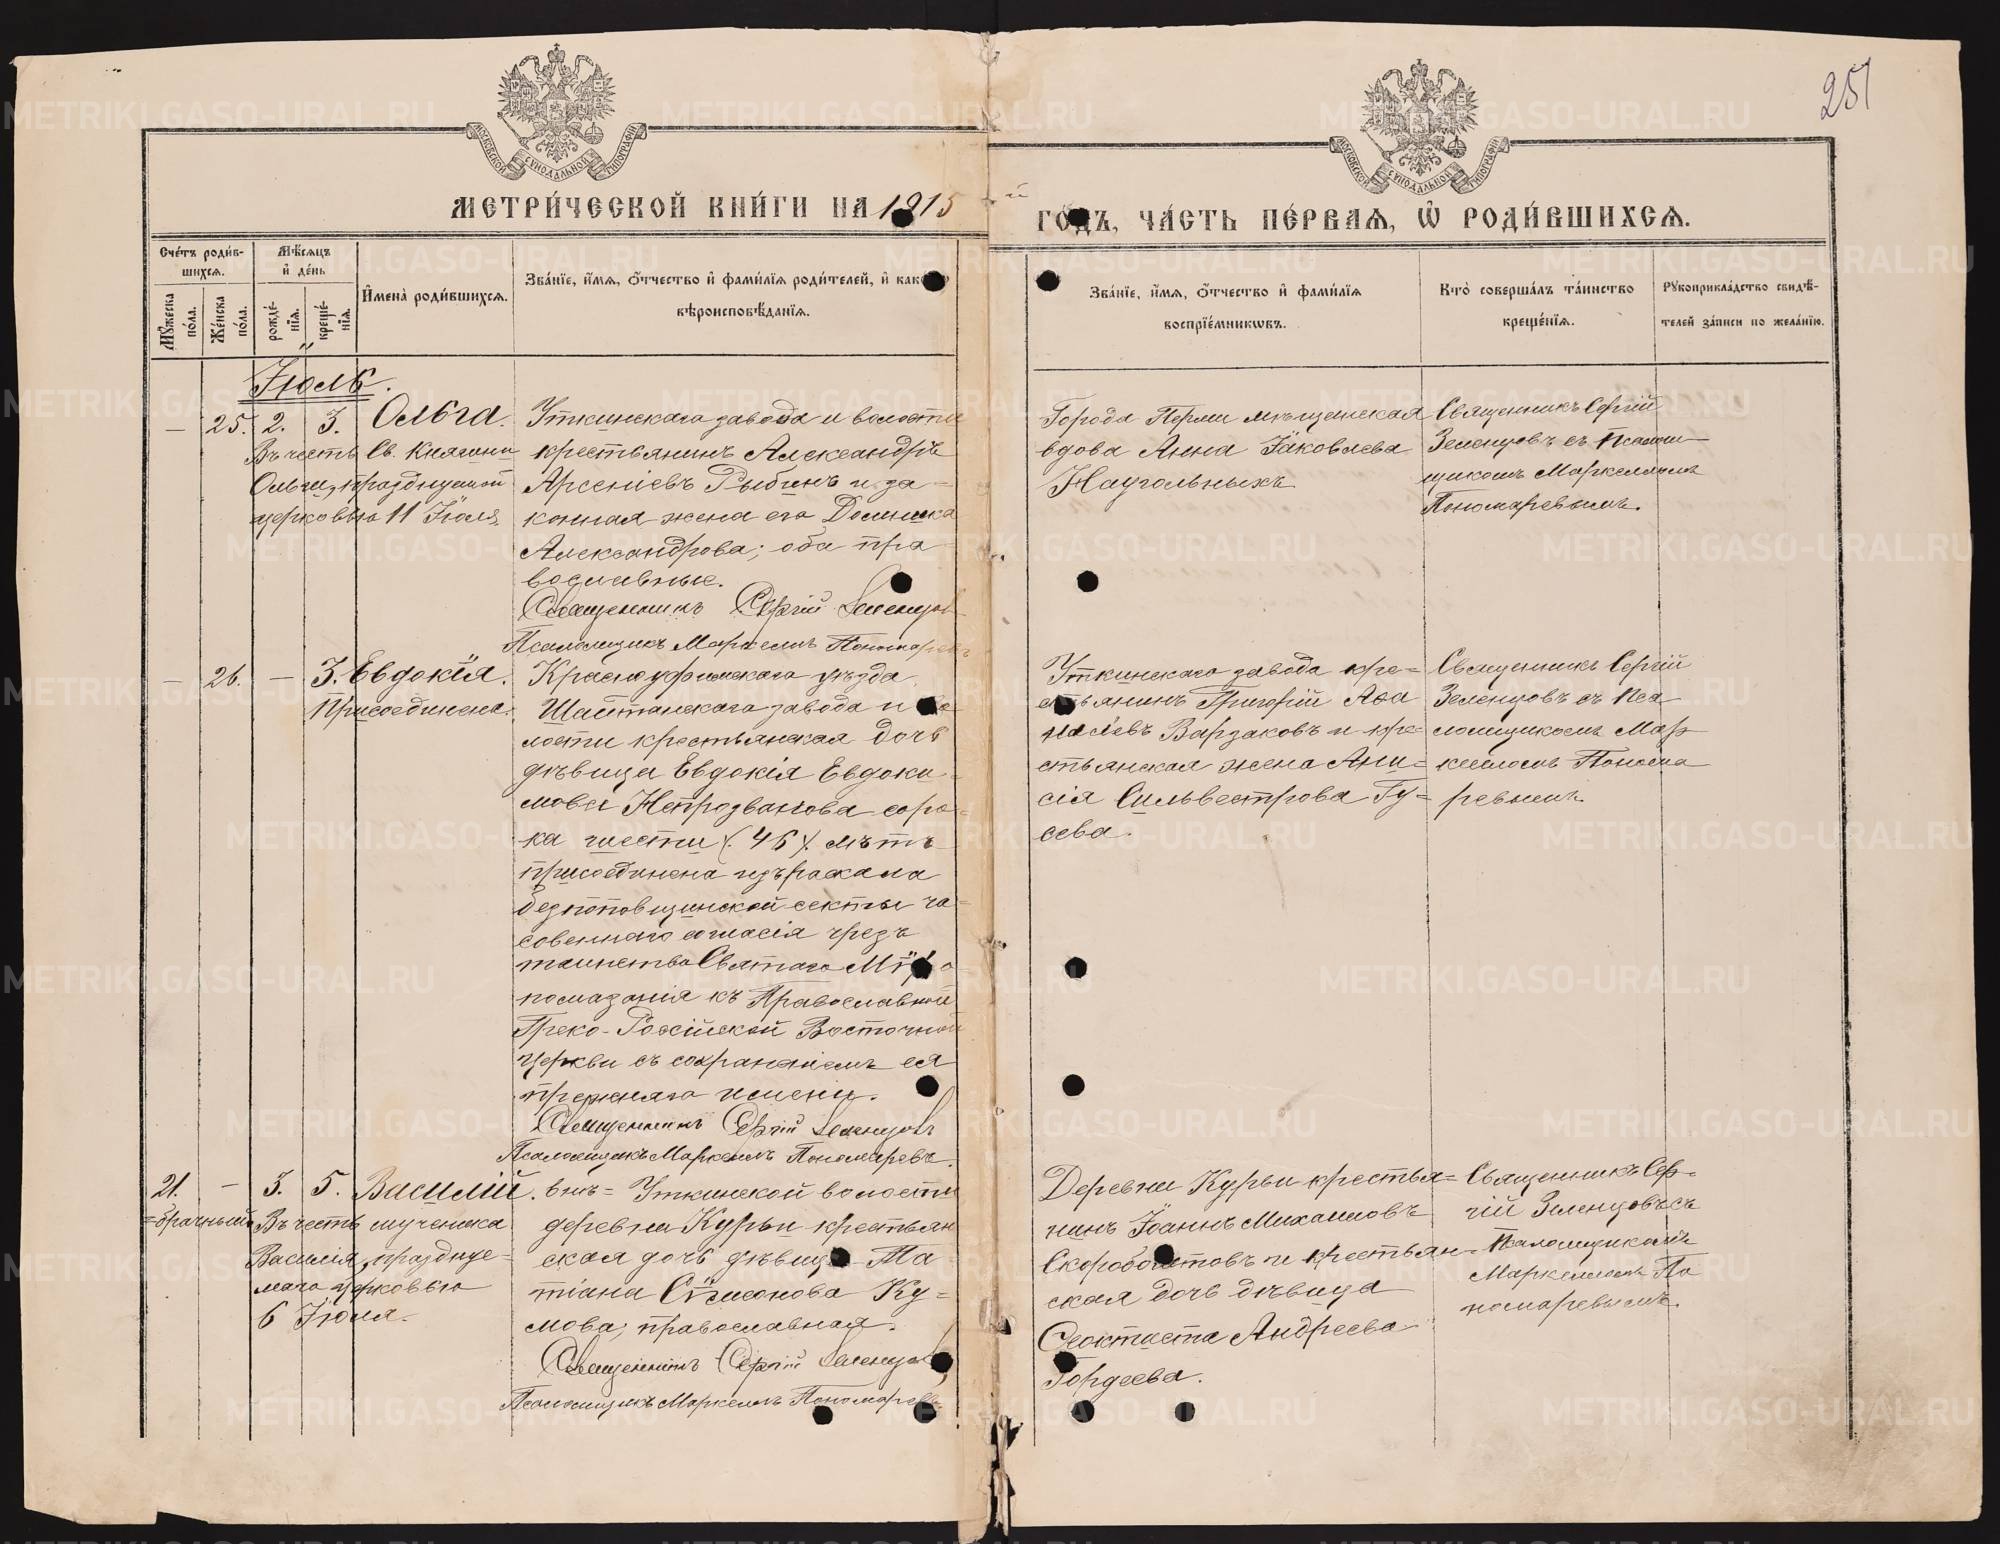 251
МОСКОВСКОЙ СѴНОДАЛЬНОЙ ТИПОГРАФІИ
МОСКОВСКОЙ СѴНОДАЛЬНОЙ ТИПОГРАФІИ
МЕТРИ́ЧЕСКОЙ КНИ́ГИ НА 1915 й ГО́ДЪ, ЧА́СТЬ ПЕ́РВАѦ, Ѡ҆ РОДИ́ВШИХСѦ.
Сче́тъ роди́в-
шихсѧ.
Мѣ́сѧцъ
и҆ де́нь
Мꙋ́жеска
по́ла.
Же́нска
по́ла.
рожде́-
нїѧ.
креще́-
нїѧ.
И҆мена̀ роди́вшихсѧ.
Зва́нїе, и҆́мѧ, ѻ҆́тчество и҆ фами́лїѧ роди́телей, и҆ како́гѡ
вѣроисповѣ́данїѧ.
Зва́нїе, и҆́мѧ, ѻ҆́тчество и҆ фами́лїѧ
воспрїе́мникѡвъ.
Кто̀ соверша́лъ та́инство
креще́нїѧ.
Рꙋкоприкла́дство свидѣ́-
телей за́писи по жела́нїю.
Іюль.
— 25. 2. 3. Ольга.
Въ честь Св. Княгини
Ольги, празднуемой
церковью 11 Іюля
Уткинскаго завода и волости
крестьянинъ Александръ
Арсеніевъ Рыбинъ и за-
конная жена его Домника
Александрова; оба пра
вославные.
Священникъ Сергій Зеленцовъ
Псаломщикъ Маркеллъ Пономаревъ
Города Перми мѣщанская
вдова Анна Іаковлева
Наугольныхъ
Священникъ Сергій
Зеленцовъ съ Псалом-
щикомъ Маркелломъ
Пономаревымъ.
— 26. — 3. Евдокія.
Присоединена.
Красноуфимскаго уѣзда
Шайтанскаго завода и во
лости крестьянская дочь
дѣвица Евдокія Евдоки-
мова Непрозванова соро-
ка шести (46) лѣтъ
присоединена изъ раскола
безпоповщинской секты ча-
совеннаго согласія чрезъ
таинство Святаго Мѵро
помазанія къ Православной
Греко-Россійской Восточной
Церкви съ сохраненіемъ ея
прежняго имени.
Священникъ Сергій Зеленцовъ
Псаломщикъ Маркеллъ Пономаревъ.
Уткинскаго завода кре=
стьянинъ Григорій Аѳа
насіевъ Варзаковъ и кре=
стьянская жена Ани=
сія Сильвестрова Гу=
сева.
Священникъ Сергій
Зеленцовъ съ Пса
ломщикомъ Мар
келломъ Понома
ревымъ.
21. — 3. 5. Василій.
внѣ=
=брачный
Въ честь мученика
Василія, праздную-
маго церковью
6 Іюля.
Уткинской волости
деревни Курьи крестьян
ская дочь дѣвица Та-
тіана Сѵмеонова Ку=
мова; православная.
Священникъ Сергій Зеленцовъ
Псаломщикъ Маркеллъ Пономаревъ
Деревни Курьи крестья=
нинъ Іоаннъ Михаиловъ
Скоробогатовъ и крестьян-
ская дочь дѣвица
Ѳеоктиста Андреева
Гордеева.
Священникъ Сер-
гій Зеленцовъ съ
Псаломщикомъ
Маркелломъ По
номаревымъ.
METRIKI.GASO-URAL.RU